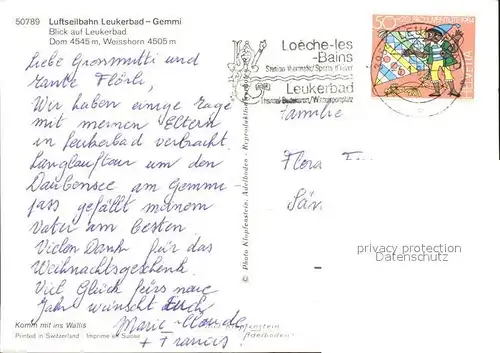 50789 Luftseilbahn Leukerbad – Gemmi
Blick auf Leukerbad
Dom 4545 m, Weisshorn 4505 m
Liebe Grossmutti und
Tante Flörli,
Wir haben einige Tage
mit meinen Eltern
in Leukerbad verbracht.
Langlauftour um den
Daubensee am Gemmi-
pass gefällt meinem
Vater am besten.
Vielen Dank für das
Weihnachtsgeschenk.
Viel Glück fürs neue
Jahr wünscht Euch
Marie-Claude
+ Francis!
Komm mit ins Wallis
Printed in Switzerland Imprimé en Suisse
© Photo Klopfenstein, Adelboden - Reproduktion
Loèche-les
-Bains
Station thermale/Sports d'hiver
Leukerbad
Thermal-Badekurort/Wintersportplatz
50+20 PRO JUVENTUTE 1984
HELVETIA
Familie
Flora
privacy protection
DATENSCHUTZ
Klopfenstein
Adelboden